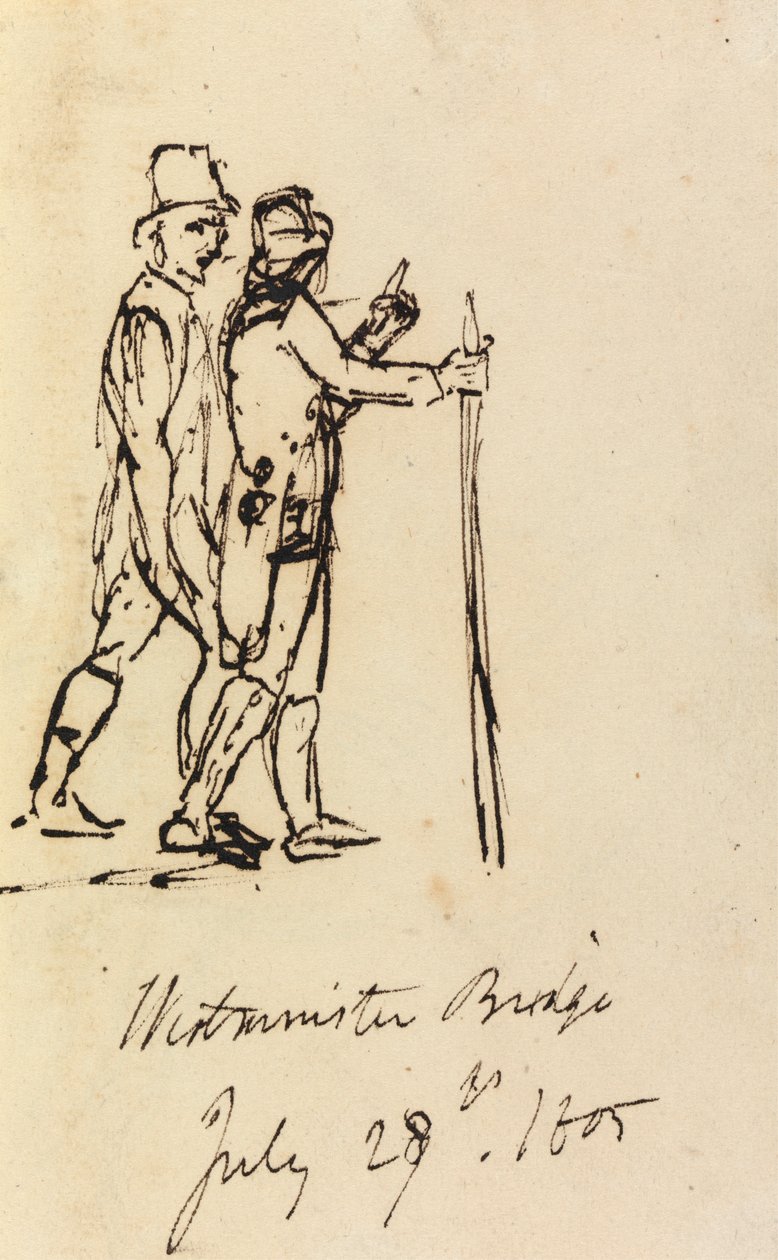 Westminster Bridge
July 28th. 1805